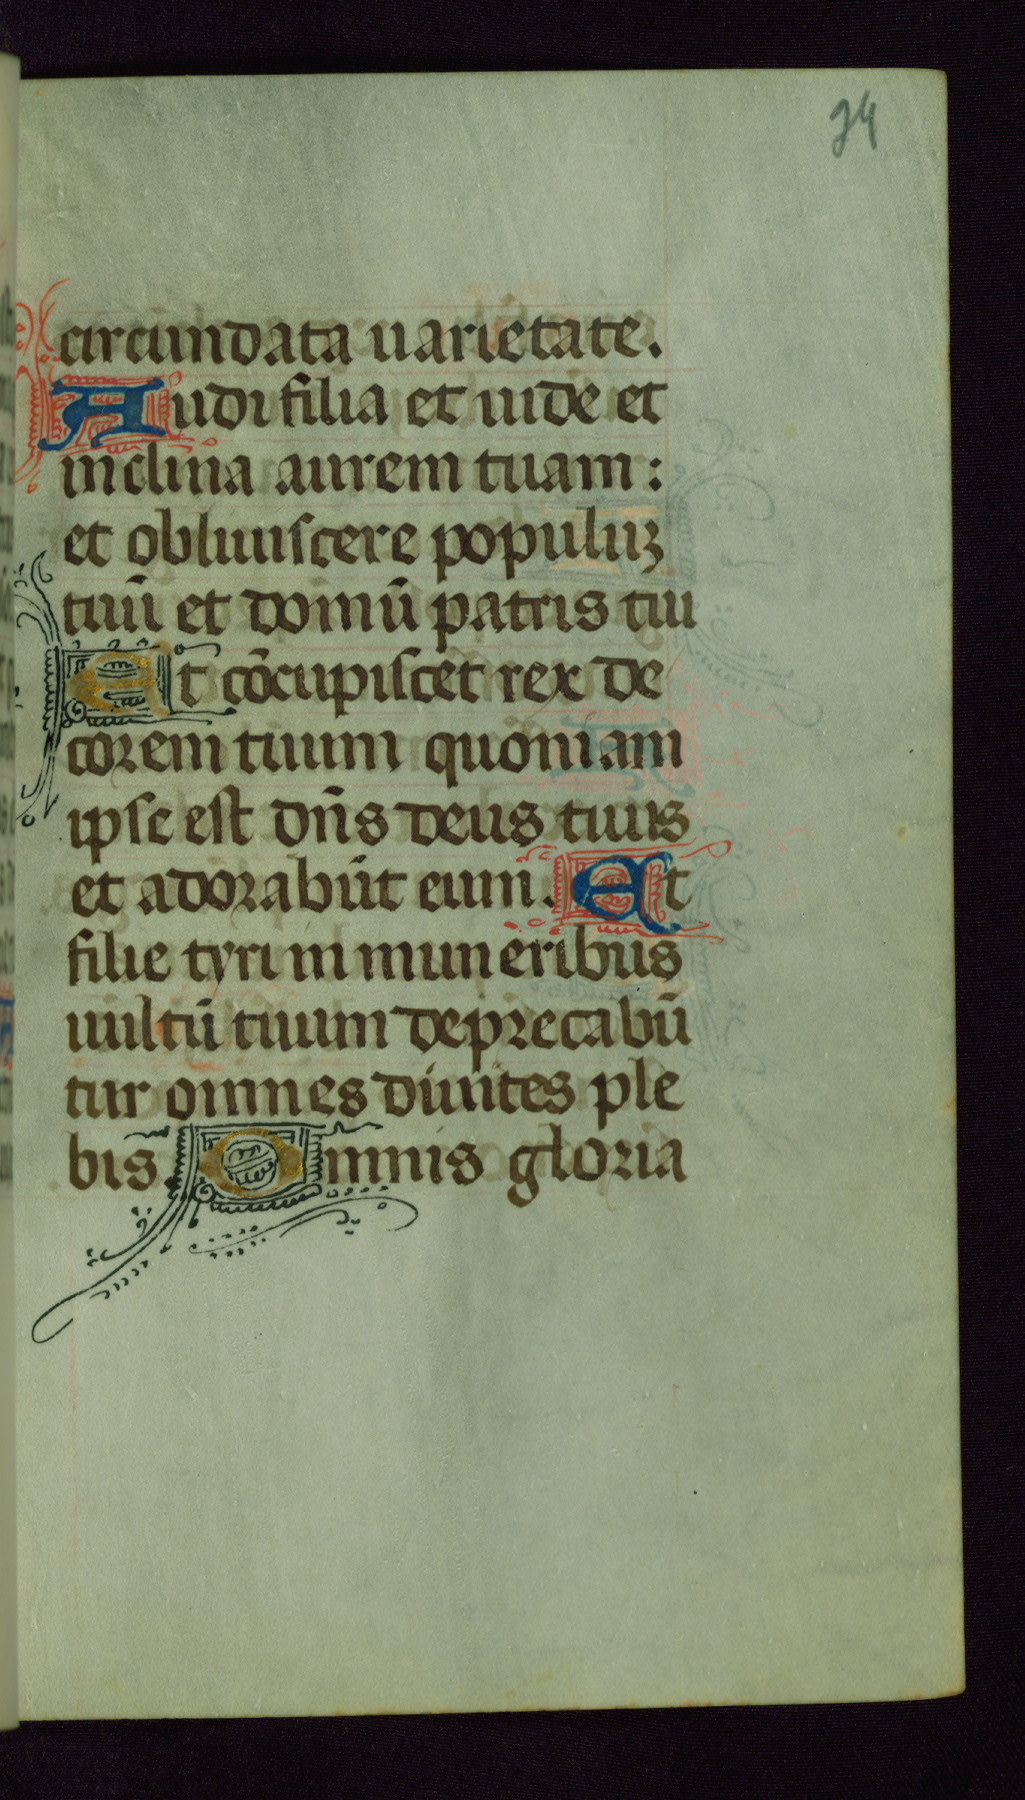 34
circundata uarietate.
Audi filia et uide et
inclina aurem tuam:
et obliuiscere populuʒ
tuū et domū patris tui
Et cōcupiscet rex de
corem tuum quoniam
ipse est dn̄s deus tuus
et adorabūt eum. Et
filie tyri in muneribus
uultū tuum deprecabū
tur omnes diuites ple
bis. Omnis gloria